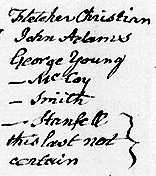 Fletcher Christian
John Adams
George Young
- McCoy
- Smith
- Stanfell
this last not
certain